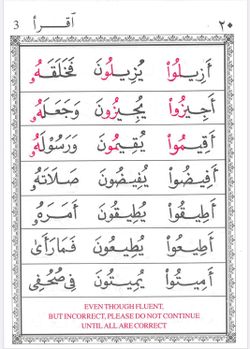 ٢٠ اَقْرَأ 3
أَزِيلُوْا يُزِيلُونَ فَخَلَقَهُۥ
أَجِيزُوْا يُجِيزُونَ وَجَعَلَهُۥ
أَقِيمُوْا يُقِيمُونَ وَرَسُوْلَهُۥ
أَفِيضُوْا يُفِيضُونَ صَلَاتَهُۥ
أَطِيقُوْا يُطِيقُونَ أَمَرَهُۥ
أَطِيعُوْا يُطِيعُونَ فَمَارَأَىٰ
أَمِيتُوْا يُمِيتُونَ فِى صُحُفِى
EVEN THOUGH FLUENT,
BUT INCORRECT, PLEASE DO NOT CONTINUE
UNTIL ALL ARE CORRECT